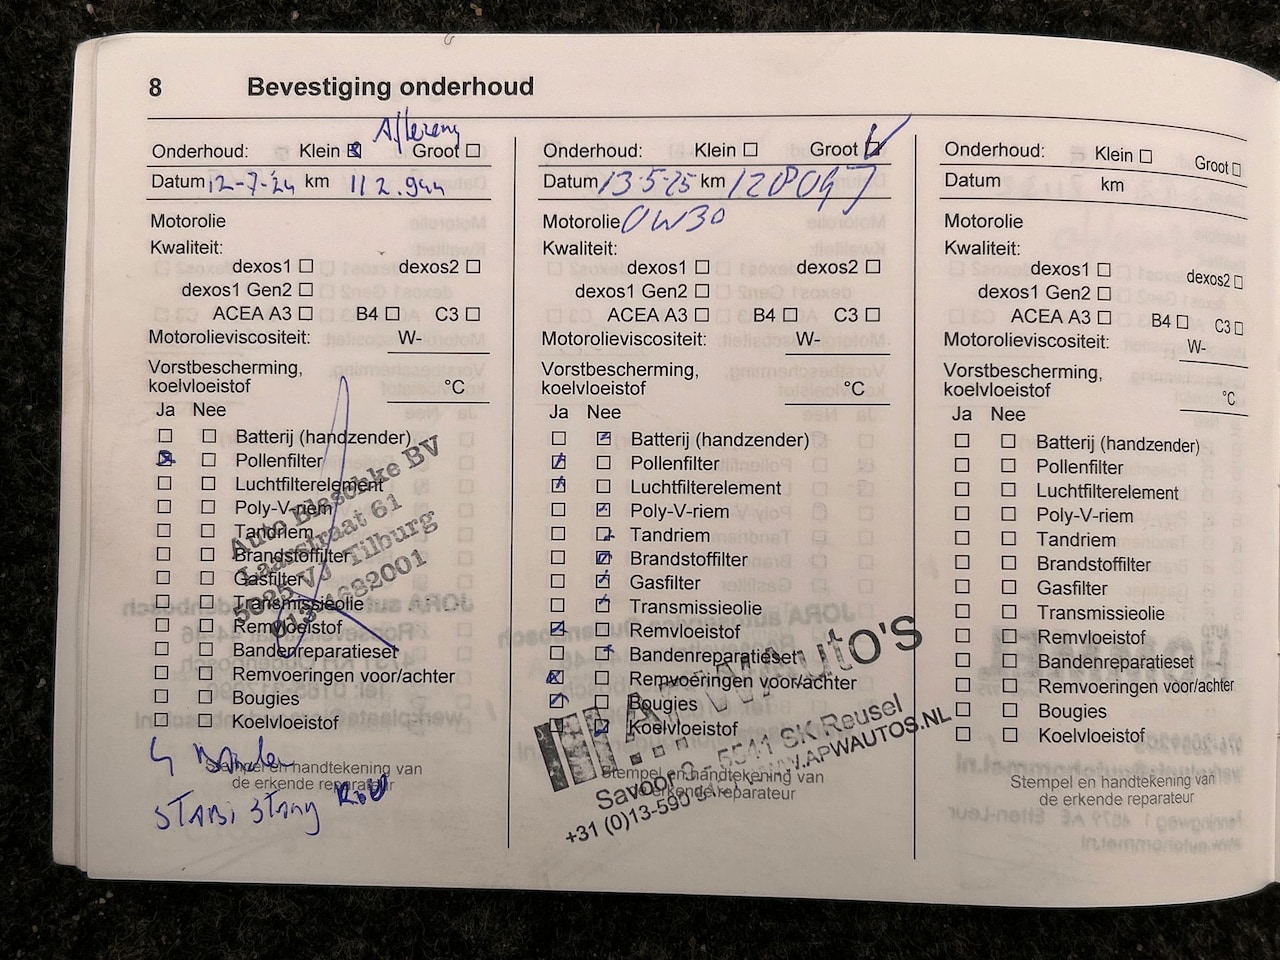 8 Bevestiging onderhoud
Onderhoud: Klein ☒ Groot ☐
Datum 12-7-24 km 112.944
Motorolie
Kwaliteit:
dexos1 ☐ dexos2 ☐
dexos1 Gen2 ☐
ACEA A3 ☐ B4 ☐ C3 ☐
Motorolieviscositeit: W-
Vorstbescherming,
koelvloeistof °C
Ja Nee
☐ ☐ Batterij (handzender)
☒ ☐ Pollenfilter
☐ ☐ Luchtfilterelement
☐ ☐ Poly-V-riem
☐ ☐ Tandriem
☐ ☐ Brandstoffilter
☐ ☐ Gasfilter
☐ ☐ Transmissieolie
☐ ☐ Remvloeistof
☐ ☐ Bandenreparatieset
☐ ☐ Remvoeringen voor/achter
☐ ☐ Bougies
☐ ☐ Koelvloeistof
Auto Blaschke BV
Laarstraat 61
5025 VJ Tilburg
013-4682001
4 Banden
Stempel en handtekening van
de erkende reparateur
STABi STang
Onderhoud: Klein ☐ Groot ☑
Datum 13-5-25 km 128047
Motorolie 0W30
Kwaliteit:
dexos1 ☐ dexos2 ☐
dexos1 Gen2 ☐
ACEA A3 ☐ B4 ☐ C3 ☐
Motorolieviscositeit: W-
Vorstbescherming,
koelvloeistof °C
Ja Nee
☐ ☑ Batterij (handzender)
☑ ☐ Pollenfilter
☑ ☐ Luchtfilterelement
☐ ☑ Poly-V-riem
☐ ☑ Tandriem
☐ ☑ Brandstoffilter
☐ ☑ Gasfilter
☐ ☑ Transmissieolie
☑ ☐ Remvloeistof
☐ ☑ Bandenreparatieset
☑ ☐ Remvoeringen voor/achter
☑ ☐ Bougies
☐ ☑ Koelvloeistof
A.P.W. Auto's
Savoor - 5541 SK Reusel
WWW.APWAUTOS.NL
+31 (0)13-590
Stempel en handtekening van
de erkende reparateur
Onderhoud: Klein ☐ Groot ☐
Datum km
Motorolie
Kwaliteit:
dexos1 ☐ dexos2 ☐
dexos1 Gen2 ☐
ACEA A3 ☐ B4 ☐ C3 ☐
Motorolieviscositeit: W-
Vorstbescherming,
koelvloeistof °C
Ja Nee
☐ ☐ Batterij (handzender)
☐ ☐ Pollenfilter
☐ ☐ Luchtfilterelement
☐ ☐ Poly-V-riem
☐ ☐ Tandriem
☐ ☐ Brandstoffilter
☐ ☐ Gasfilter
☐ ☐ Transmissieolie
☐ ☐ Remvloeistof
☐ ☐ Bandenreparatieset
☐ ☐ Remvoeringen voor/achter
☐ ☐ Bougies
☐ ☐ Koelvloeistof
Stempel en handtekening van
de erkende reparateur